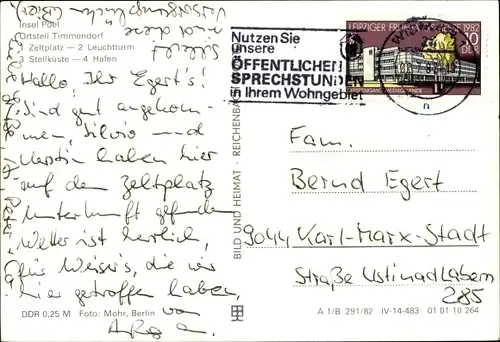 Insel Poel
Ortsteil Timmendorf
1 Zeltplatz — 2 Leuchtturm
3 Steilküste — 4 Hafen
Hallo! Ihr Egert's!
Sind gut angekom-
men, Silvio und
haben hier
auf dem Zeltplatz
Unterkunft gefunden
Wetter ist herrlich,
für Weiser's, die wir
hier getroffen haben,
von
DDR 0,25 M Foto: Mohr, Berlin
BILD UND HEIMAT · REICHENBACH
Nutzen Sie
unsere
ÖFFENTLICHEN
SPRECHSTUNDEN
in Ihrem Wohngebiet
LEIPZIGER FRÜHJAHRSMESSE 1982
10
DDR
Fam.
Bernd Egert
9044 Karl-Marx-Stadt
Straße Usti nad Labem
285
A 1/B 291/82 IV-14-483 01 01 10 264